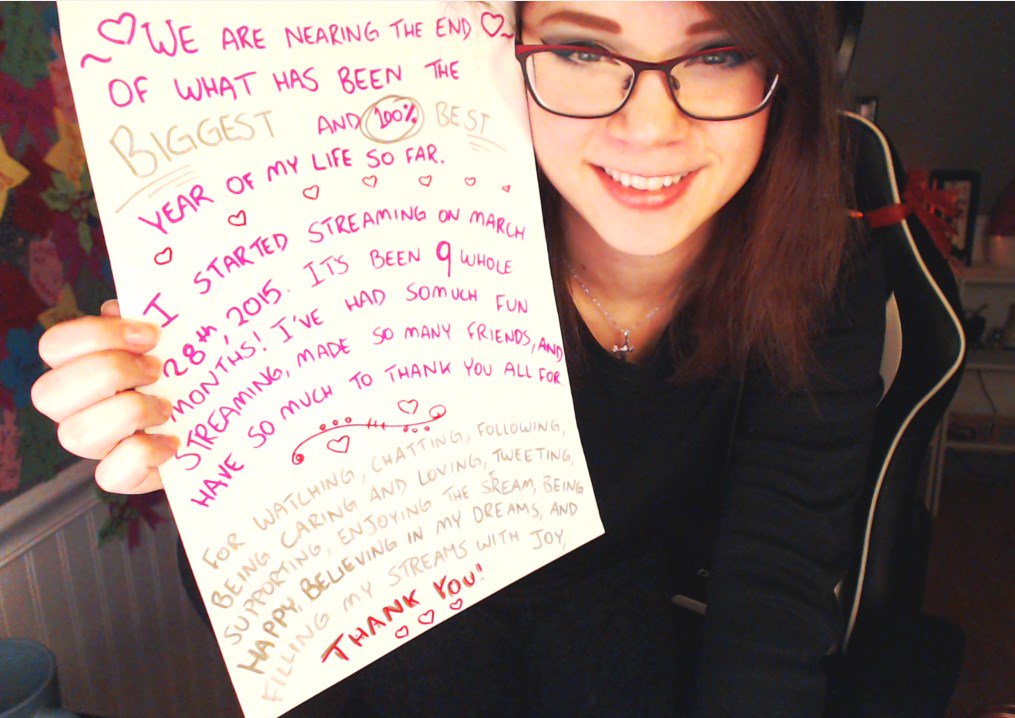 WE ARE NEARING THE END
OF WHAT HAS BEEN THE
BIGGEST AND 100% BEST
YEAR OF MY LIFE SO FAR.
I STARTED STREAMING ON MARCH
28th, 2015. IT'S BEEN 9 WHOLE
MONTHS! I'VE HAD SOMUCH FUN
STREAMING, MADE SO MANY FRIENDS, AND
HAVE SO MUCH TO THANK YOU ALL FOR
FOR WATCHING, CHATTING, FOLLOWING,
BEING CARING AND LOVING, TWEETING,
SUPPORTING, ENJOYING THE SREAM, BEING
HAPPY, BELIEVING IN MY DREAMS, AND
FILLING MY STREAMS WITH JOY,
THANK YOU!